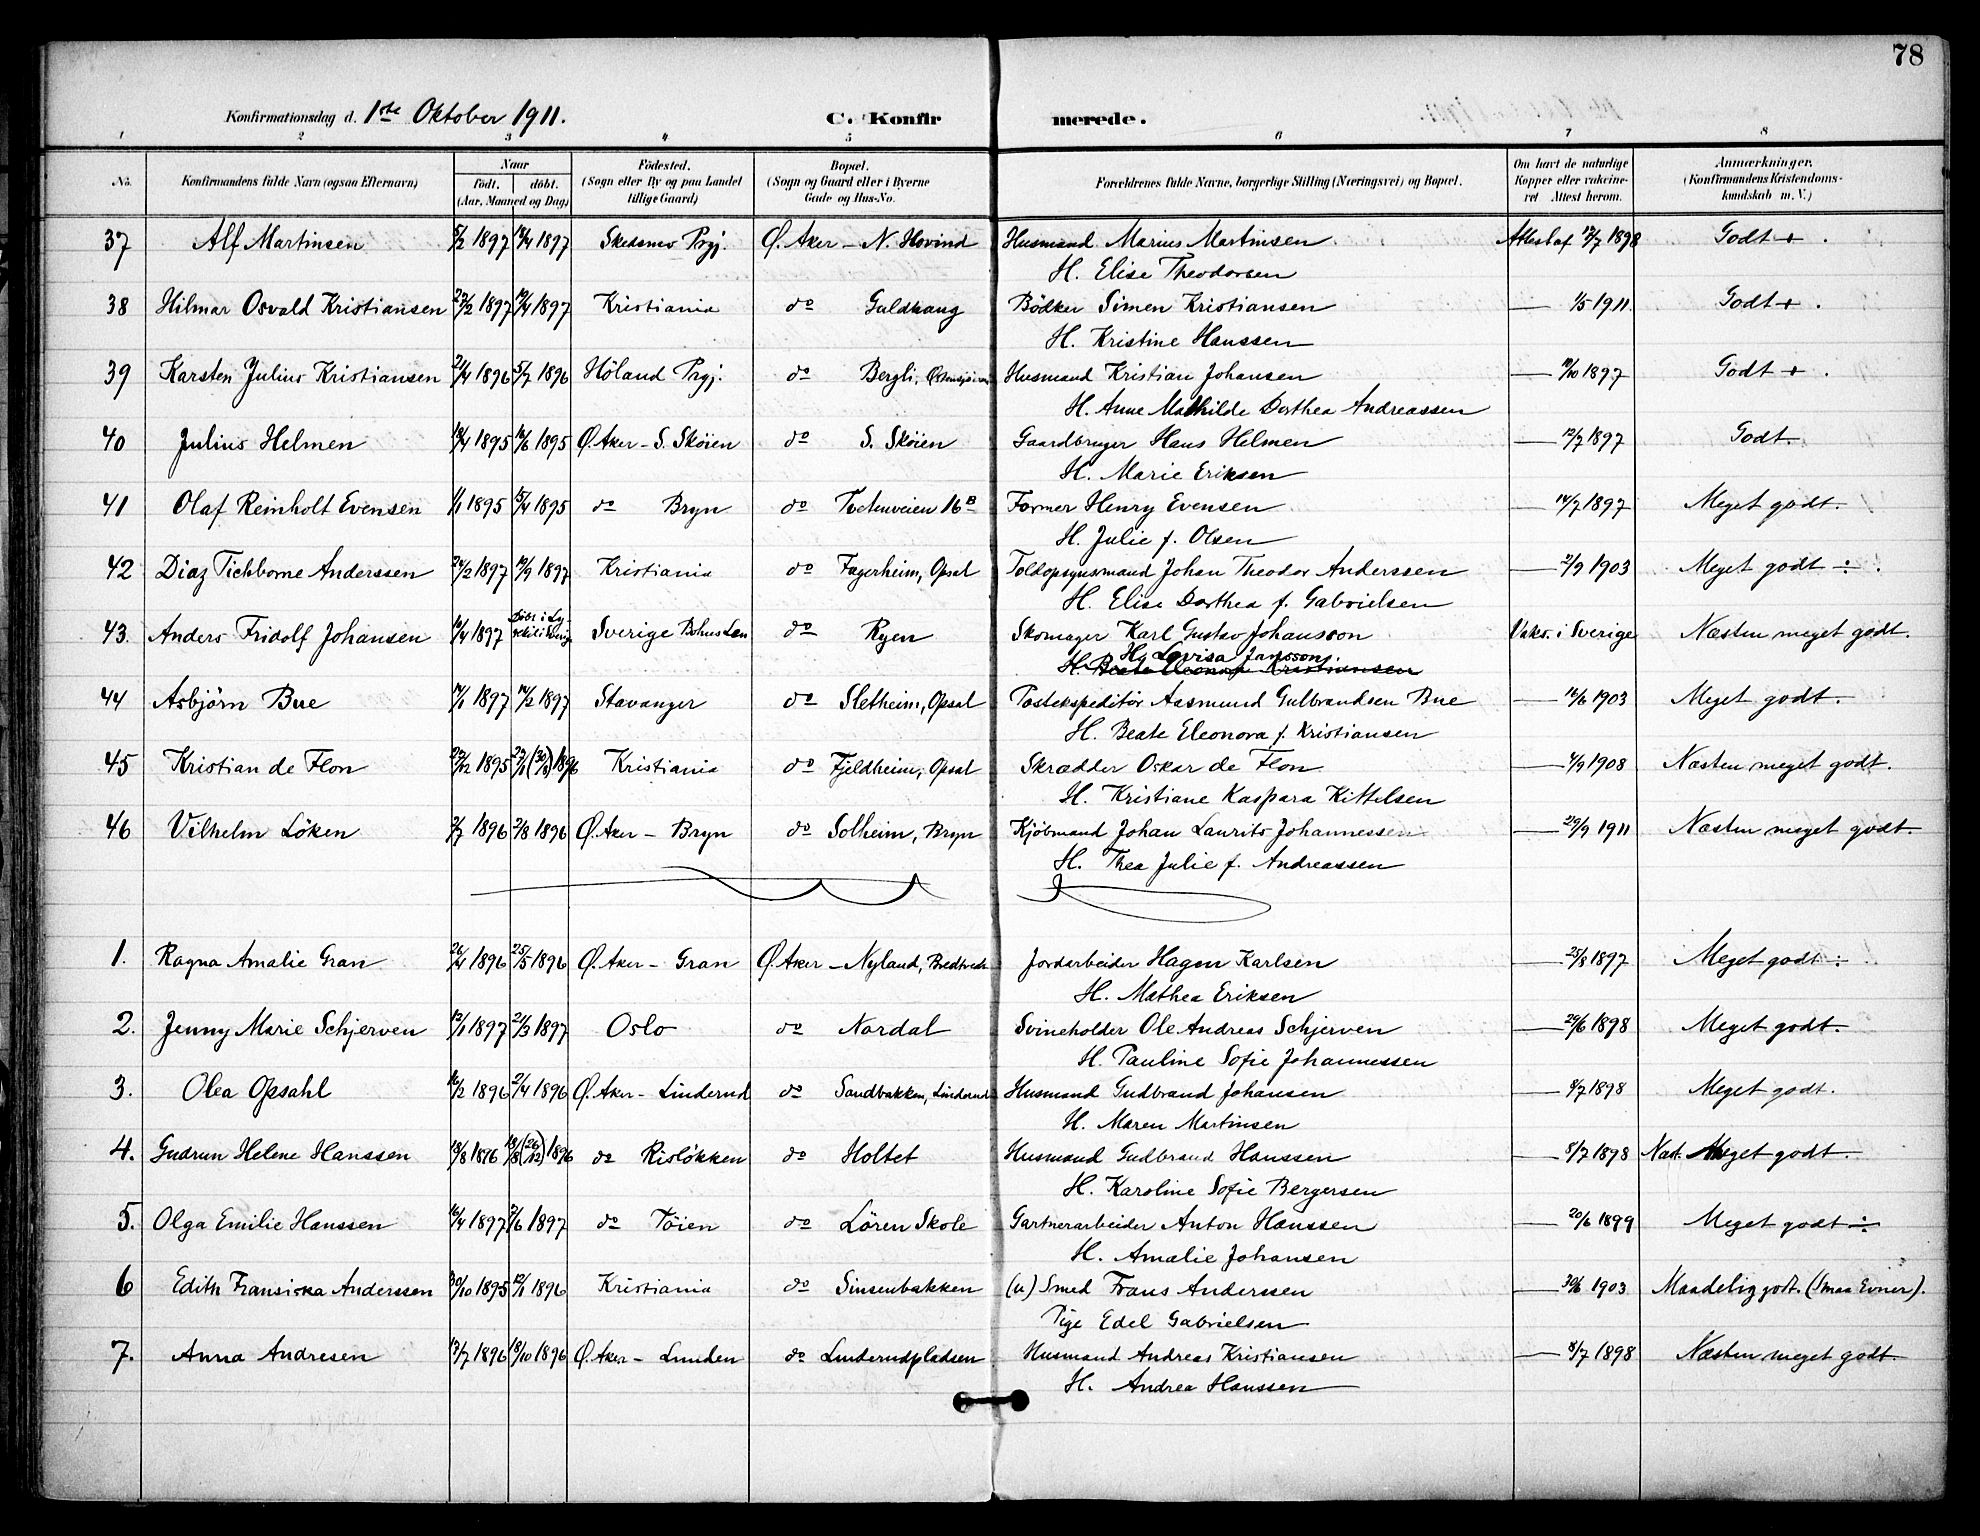 78
Konfirmationsdag d. 1ste Oktober 1911. C. Konfirmerede.
1 2 3 4 5 6 7 8
No. Konfirmandens fulde Navn (ogsaa Efternavn) Naar født. døbt. (Aar, Maaned og Dag) Fødested. (Sogn eller By og paa Landet tillige Gaard) Bopæl. (Sogn og Gaard eller i Byerne Gade og Hus-No. Forældrenes fulde Navne, borgerlige Stilling (Næringsvei) og Bopæl. Om havt de naturlige Kopper eller vakcineret Attest herom. Anmærkninger. (Konfirmandens Kristendomskundskab m. V.)
37 Alf Martinsen 5/2 1897 1897 Skedsmo Prgj. Ø. Aker - N. Hovind Husmand Marius Martinsen Attest af 12/7 1898 Godt + .
H. Elise Theodorsen
38 Hilmar Osvald Kristiansen 1897 1897 Kristiania do Guldhaug Bødker Simen Kristiansen — 1/5 1911 Godt + .
H. Kristine Hanssen
39 Karsten Julius Kristiansen 21/4 1896 5/7 1896 Höland Prgj. do Bergli, Husmand Kristian Johansen — 1897 Godt + .
H. Anne Mathilde Dorthea Andreassen
40 Julius Helmen 1895 1895 Ø. Aker - S. Skøien do S. Skøien Gaardbruger Hans Helmen — 12/7 1897 Godt.
H. Marie Eriksen
41 Olaf Reinholt Evensen 1/1 1895 15/4 1895 do Bryn do Tvetenveien 16 B Former Henry Evensen — 14/7 1897 Meget godt.
H. Julie f. Olsen
42 Diaz Tichborne Anderssen 24/2 1897 1897 Kristiania do Fagerheim, Opsal Toldopsynsmand Johan Theodor Anderssen — 2/9 1903 Meget godt ÷ .
H. Elise Dorthea f. Gabrielsen
43. Anders Fridolf Johansen 1897 Døbt i Lysekil i Sverige Sverige Bohus Len do Ryen Skomager Karl Gustav Johansson Vaks. i Sverige Næsten meget godt.
H. Lovisa Jansson
H. Beate Eleonora Kristiansen
44 Asbjørn Bue 1897 1897 Stavanger do Sletheim, Opsal Postekspeditør Aasmund Gulbrandsen Bue — 16/6 1903 Meget godt.
H. Beate Eleonora f. Kristiansen
45 Kristian de Flon 1895 1896 Kristiania do Fjeldheim, Opsal Skrædder Oskar de Flon — 1908 Næsten meget godt.
H. Kristiane Kaspara Kittelsen
46 Vilhelm Löken 1896 2/8 1896 Ø. Aker - Bryn do Solheim, Bryn Kjøbmand Johan Laurits Johannessen — 29/9 1911 Næsten meget godt.
H. Thea Julie f. Andreassen
1. Ragna Amalie Gran 26/4 1896 25/5 1896 Ø. Aker - Gran Ø. Aker - Nyland, Bredtvedt Jordarbeider Hagen Karlsen — 25/8 1897 Meget godt ÷
H. Mathea Eriksen
2. Jenny Marie Schjerven 12/1 1897 21/3 1897 Oslo do Nordal Svineholder Ole Andreas Schjerven — 29/6 1898 Meget godt.
H. Pauline Sofie Johannessen
3. Olea Opsahl 16/2 1896 2/4 1896 Ø. Aker - Linderud do Sandbakken, Linderud Husmand Gudbrand Johansen — 8/7 1898 Meget godt.
H. Maren Martinsen
4. Gudrun Helene Hanssen 18/8 1896 18/8 (26/12) 1896 do Risløkken do Holtet Husmand Gudbrand Hanssen — 8/7 1898 Næst. Meget godt.
H. Karoline Sofie Bergersen
5. Olga Emilie Hanssen 16/4 1897 1897 do Tøien do Lören Skole Gartnerarbeider Anton Hanssen — 20/6 1899 Meget godt ÷
H. Amalie Johansen
6 Edith Fransiska Anderssen 30/10 1895 12/1 1896 Kristiania do Sinsenbakken (u) Smed Frans Anderssen — 30/6 1903 Maadelig godt. (Smaa Evner).
Pige Edel Gabrielsen
7. Anna Andresen 13/7 1896 18/10 1896 Ø. Aker - Lunden do Linderudpladsen Husmand Andreas Kristiansen — 8/7 1898 Næsten meget godt.
H. Andrea Hanssen